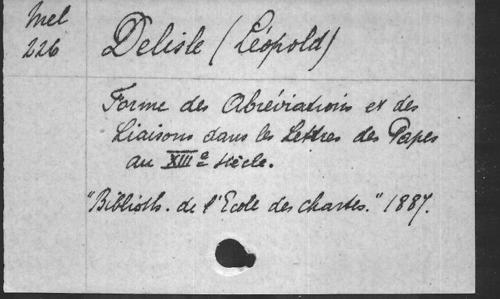 Mel
226
Delisle (Léopold)
Forme des Abréviations et des
Liaisons dans les Lettres des Papes
au XIIIe siècle.
"Biblioth. de l'Ecole des chartes." 1887.